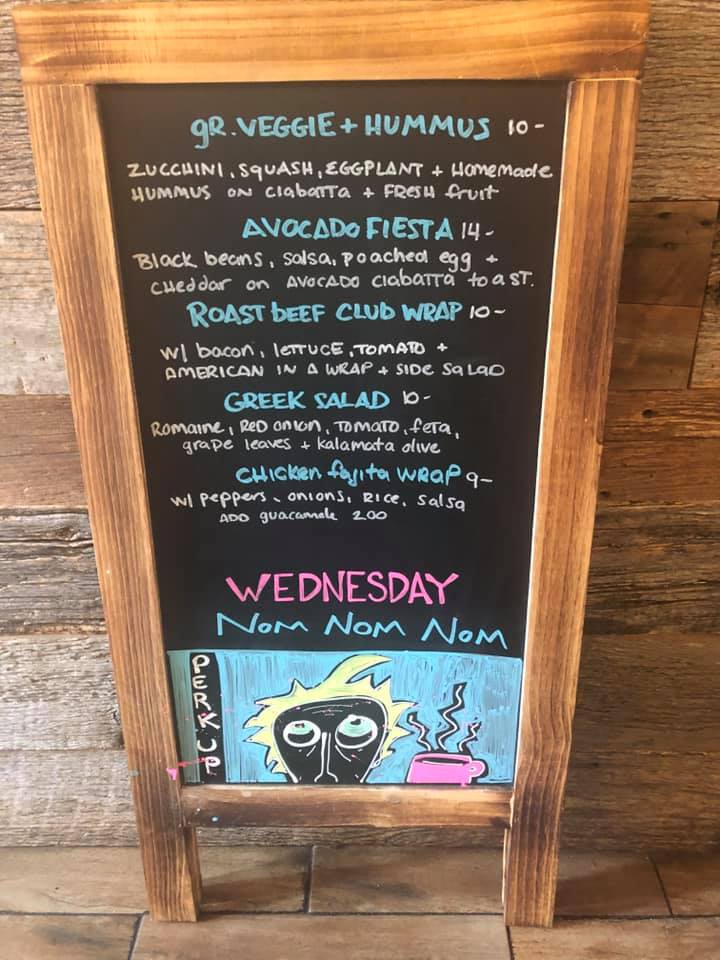 gR. VEGGIE + HUMMUS 10-
ZUCCHINI, SQUASH, EGGPLANT + Homemade
HUMMUS ON CIABATTA + FRESH fruit
AVOCADO FIESTA 14-
Black beans, salsa, poached egg +
CHeddar on AVOCADO Ciabatta toaST.
ROAST bEEF CLUB WRAP 10-
w/ bacon, LETTUCE, TOMATO +
AMERICAN IN A WRAP + SIDE SALAD
GREEK SALAD 10-
Romaine, RED ONION, TOMATO, feta,
grape leaves + kalamata olive
CHICKEN fajita WRAP 9-
w/ peppers, onions, RICE, salsa
ADD guacamole 2.00
WEDNESDAY
NOM NOM NOM
PERK UP